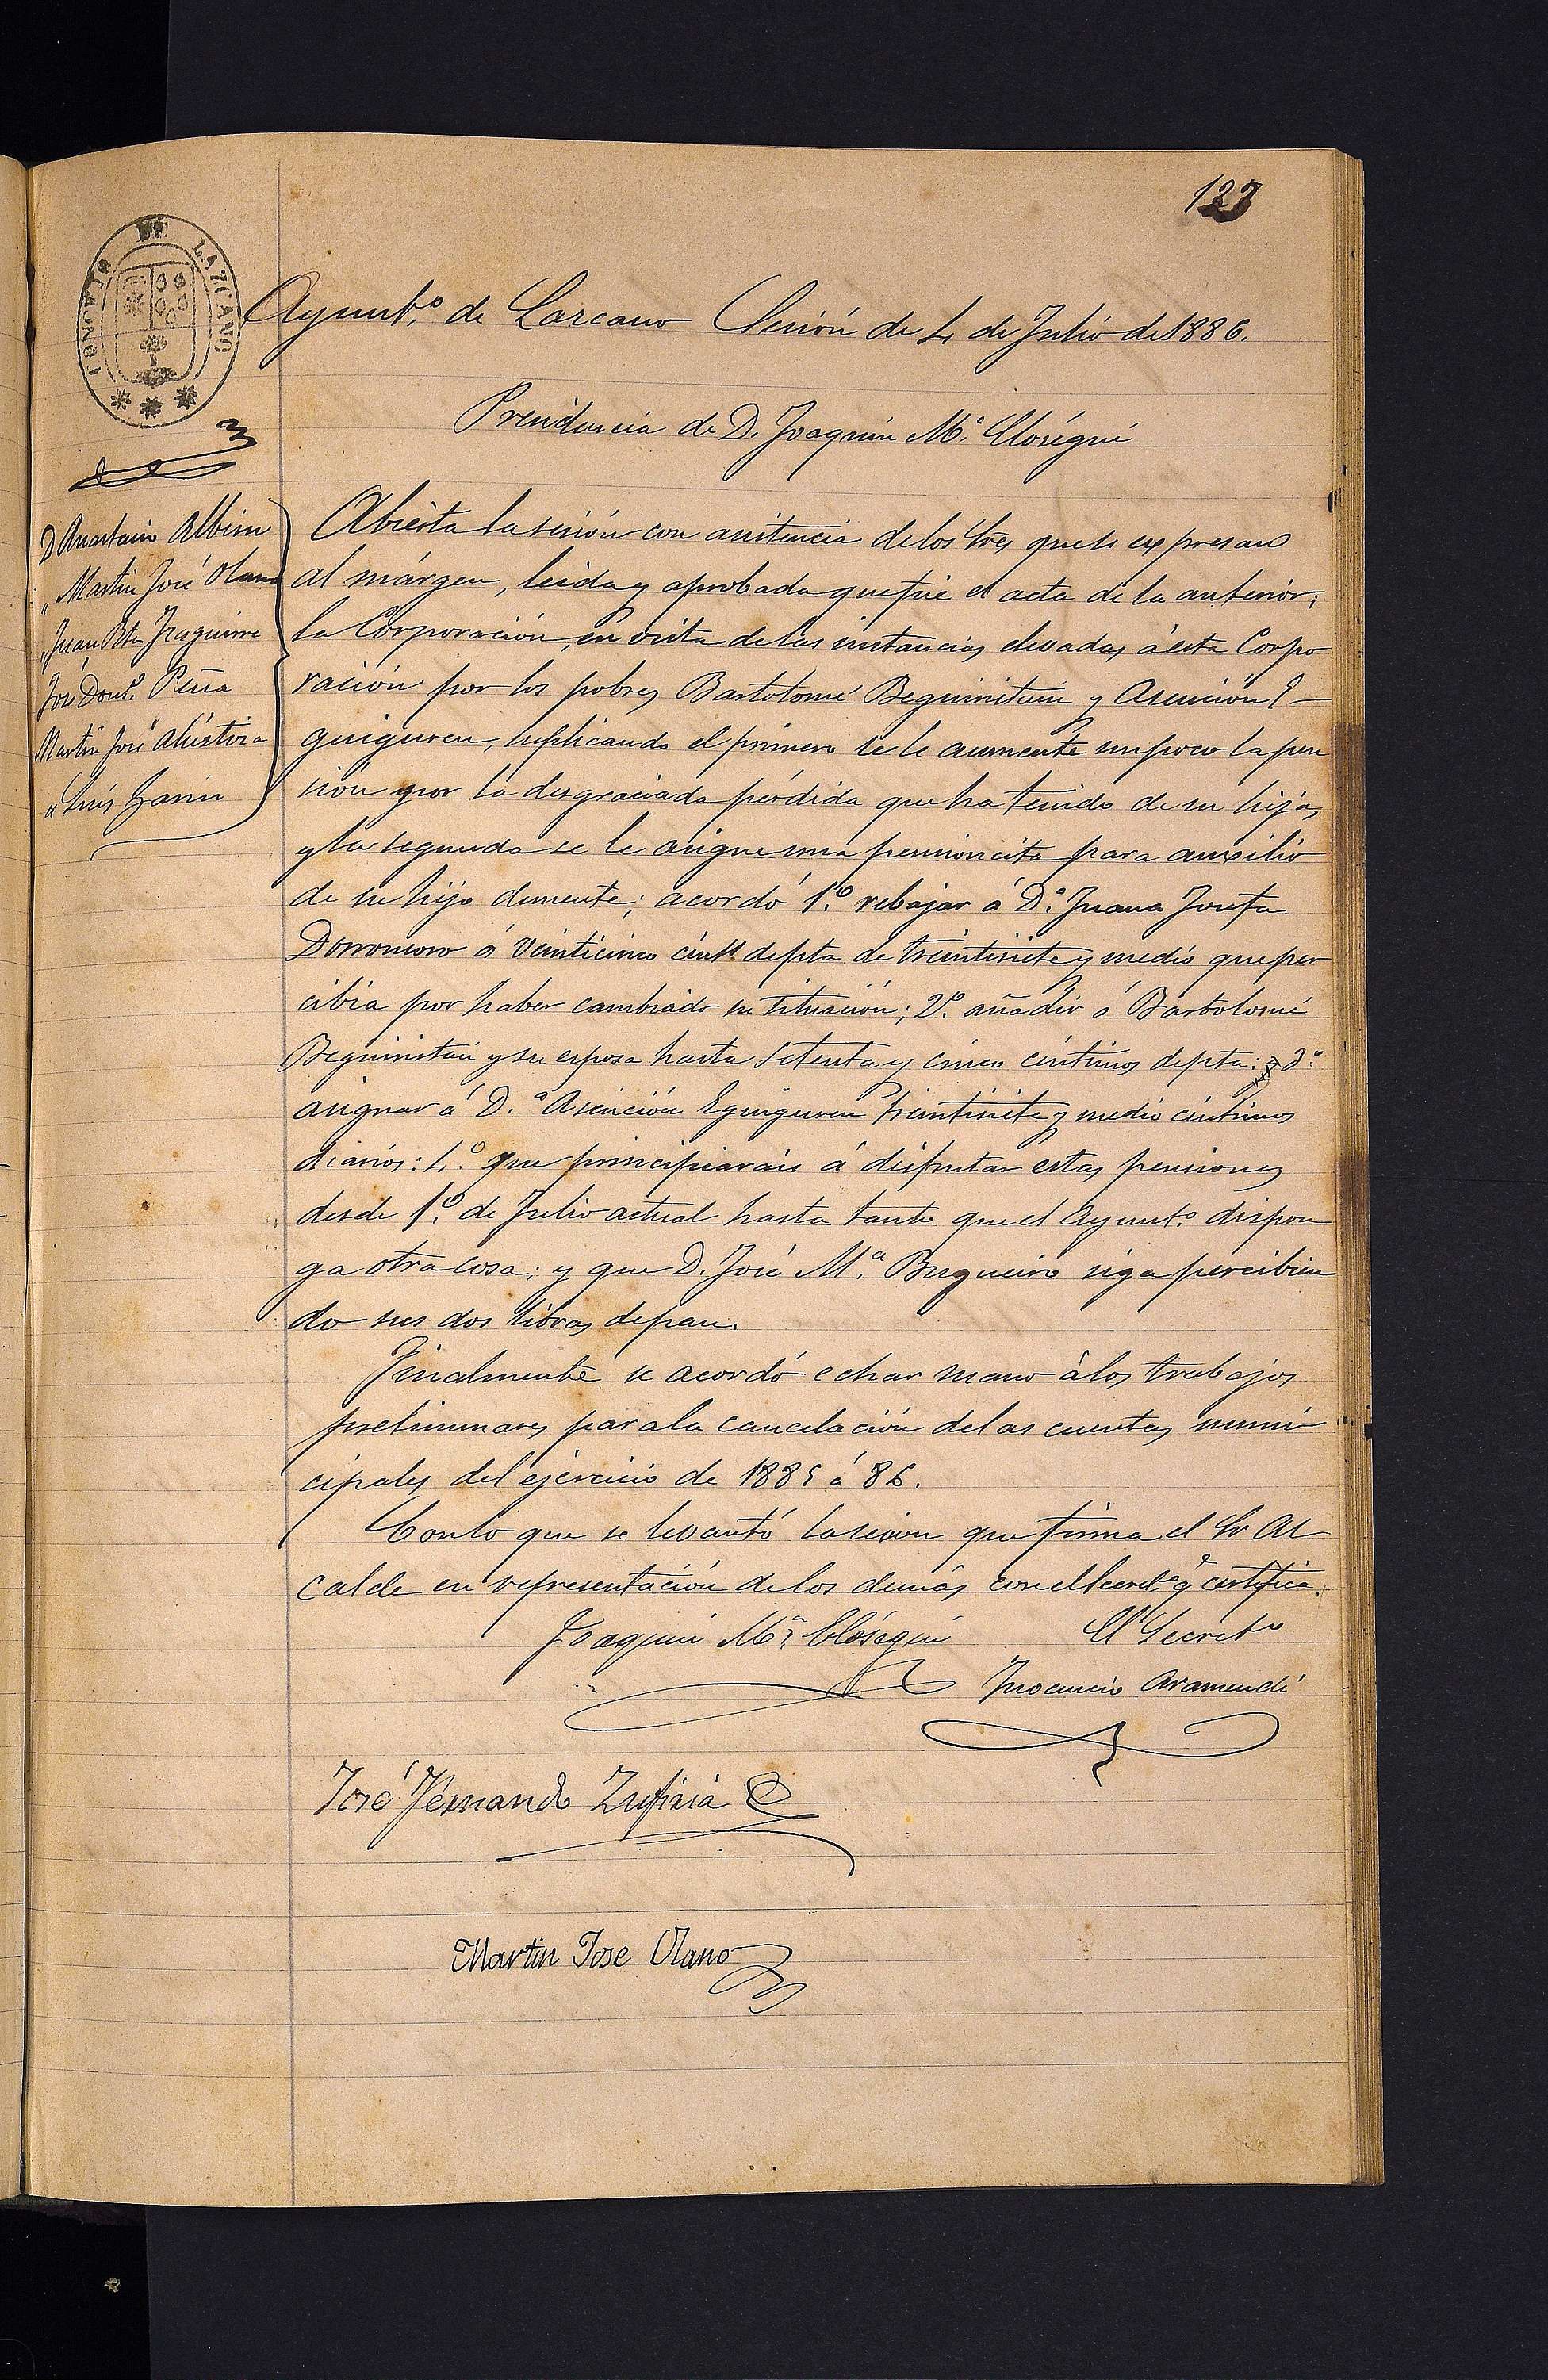 123
DE LAZCANO
Ayunt.º de Lazcano Sesión de 4 de Julio de 1886.
Presidencia de D. Joaquin M.ª Elósegui
D Anastasio Albisu
" Martin José Olano
" Juan Bta Iraguirre
José Dom.º Peña
Martin José Ahústiza
" Luis Garin
Abierta la sesión con asistencia de los Sres que se expresan
al márgen, leida y aprobada que fué el acta de la anterior;
la Corporación, en vista de las instancias elevadas á esta Corpo
ración por los pobres Bartolomé Beguiristain y Asención E-
guiguren, suplicando el primero se le aumente un poco la pen
sión por la desgraciada pérdida que ha tenido de su hija,
y la segunda se le asigne una pensioncita para auxilio
de su hijo demente; acordó 1.º rebajar á D.ª Juana Josefa
Dorronsoro á veinticinco cints de pta de treintisiete y medio que per
cibia por haber cambiado su situación; 2.º añadir á Bartolomé
Beguiristain y su esposa hasta setenta y cinco céntimos de pta: 3.º
asignar á D.ª Asención Eguiguren treintisiete y medio céntimos
diarios: 4.º que principiarais á disfrutar estas pensiones
desde 1.º de Julio actual hasta tanto que el Ayunt.º dispon
ga otra cosa; y que D. José M.ª siga percibien
do sus dos libras de pan.
Finalmente se acordó echar mano á los trabajos
preliminares para la cancelación de las cuentas muni
cipales del ejercicio de 1885 á 86.
Con lo que se levantó la sesion que firma el Sr Al
calde en representación de los demás con el Secret.º q certifica.
Joaquin M.ª Elósegui El Secret.º
Inocencio Aramendi
José Fernando Zufiria
Martin Jose Olano